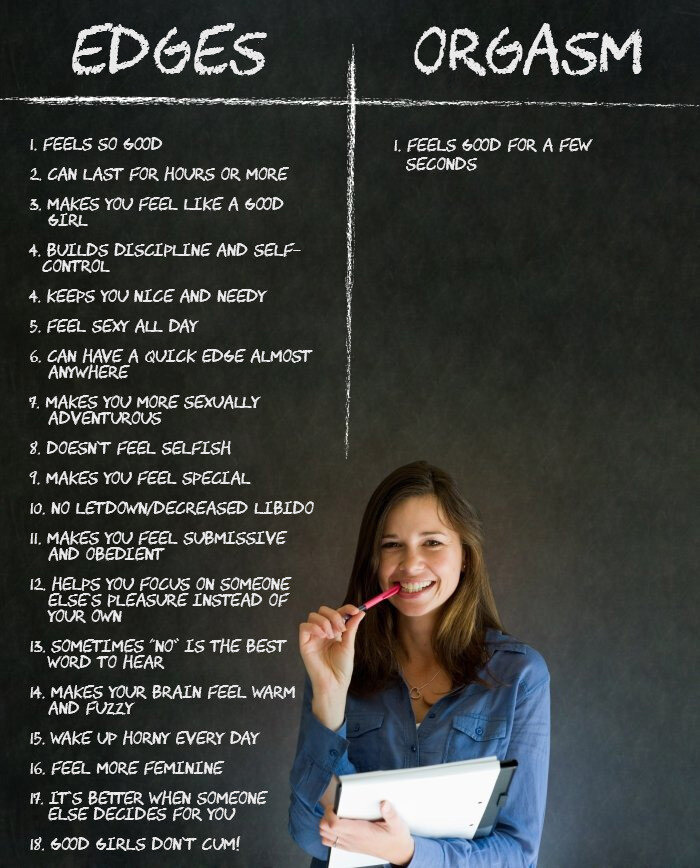 EDGES
1. FEELS SO GOOD
2. CAN LAST FOR HOURS OR MORE
3. MAKES YOU FEEL LIKE A GOOD
GIRL
4. BUILDS DISCIPLINE AND SELF-
CONTROL
4. KEEPS YOU NICE AND NEEDY
5. FEEL SEXY ALL DAY
6. CAN HAVE A QUICK EDGE ALMOST
ANYWHERE
7. MAKES YOU MORE SEXUALLY
ADVENTUROUS
8. DOESN'T FEEL SELFISH
9. MAKES YOU FEEL SPECIAL
10. NO LETDOWN/DECREASED LIBIDO
11. MAKES YOU FEEL SUBMISSIVE
AND OBEDIENT
12. HELPS YOU FOCUS ON SOMEONE
ELSE'S PLEASURE INSTEAD OF
YOUR OWN
13. SOMETIMES "NO" IS THE BEST
WORD TO HEAR
14. MAKES YOUR BRAIN FEEL WARM
AND FUZZY
15. WAKE UP HORNY EVERY DAY
16. FEEL MORE FEMININE
17. IT'S BETTER WHEN SOMEONE
ELSE DECIDES FOR YOU
18. GOOD GIRLS DON'T CUM!
ORGASM
1. FEELS GOOD FOR A FEW
SECONDS